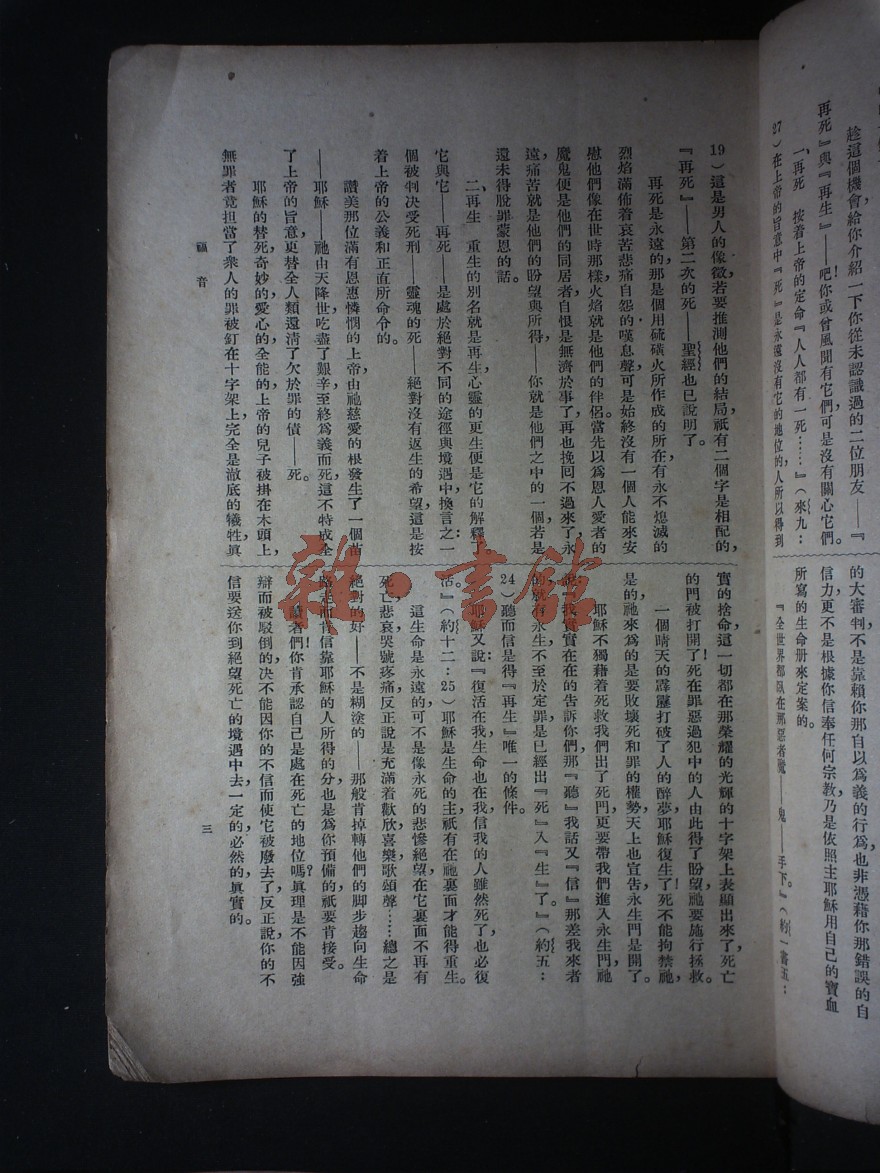 趁這個機會給你介紹一下你從未認識過的二位朋友——『
再死』與『再生』——吧!你或曾風聞有它們,可是沒有關心它們。
一、再死 按着上帝的定命『人人都有一死……』(來九:
27)在上帝的旨意中『死』是永遠沒有它的地位的,人所以得到
的大審判不是靠賴你那自以為義的行為,也非憑藉你那錯誤的自
信力,更不是根據你信奉任何宗教,乃是依照主耶穌用自己的寶血
所寫的生命册來定案的。
『全世界都臥在那惡者魔——鬼——手下。』(約一書五:
19)這是男人的像徵,若要推測他們的結局,祇有二個字是相配的,
『再死』——第二次的死——聖經也已說明了。
再死是永遠的,那是個用硫磺火所作成的所在,有永不熄滅的
烈焰,滿佈着哀苦悲痛自怨的嘆息聲,可是始終沒有一個人能來安
慰他們,像在世時那樣,火焰就是他們的伴侶。當先以為恩人愛者的
魔鬼,便是他們的同居者,自恨是無濟於事了,再也挽回不過來了,永
遠痛苦就是他們的盼望與所得——你就是他們之中的一個,若是
還未得脫罪蒙恩的話。
二、再生 重生的別名就是再生,心靈的更生便是它的解釋了。
它與它——再死——是處於絕對不同的途徑與境遇中,換言之:一
個被判決受死刑——靈魂的死——絕對沒有返生的希望,這是按
着上帝的公義和正直所命令的。
讚美那位滿有恩惠憐憫的上帝,由祂慈愛的根發生了一個苗
——耶穌——祂由天降世,吃盡了艱辛,至終為義而死,這不特成全
了上帝的旨意,更替全人類還清了欠於罪的債——死。
耶穌的替死,奇妙的,愛心的,全能的,上帝的兒子被掛在木頭上,
無罪者竟担當了衆人的罪,被釘在十字架上,完全是澈底的犧牲,眞
實的捨命,這一切都在那榮耀的光輝的十字架上表顯出來了,死亡
的門被打開了!死在罪惡過犯中的人由此得了盼望,祂要施行拯救。
一個晴天的霹靂打破了人的醉夢,耶穌復生了!死不能拘禁祂,
是的,祂來為的是要敗壞死和罪的權勢,天上也宣告,永生門是開了。
耶穌不獨藉着死救我們出了死門,更要帶我們進入永生門,祂
說:『我實實在在的告訴你們,那『聽』我話又『信』那差我來者
的,就有永生,不至於定罪,是已經出『死』入『生』了。』(約五:
24)聽而信是得『再生』唯一的條件。
耶穌又說:『復活在我,生命也在我,信我的人雖然死了,也必復
活。』(約十二:25)耶穌是生命的主,祇有在祂裏面才能得重生。
這生命是永遠的,可不是像永死的悲慘絕望,在它裏面不再有
死亡,悲哀哭號疼痛,反正說是充滿着歡欣,喜樂,歌頌聲……總之是
絕對的好——不是糊塗的——那般肯掉轉他們的脚步趨向生命
路走而肯信靠耶穌的人所得的分,也是為你預備的,祇要肯接受。
讀者們!你肯承認自己是處在死亡的地位嗎?眞理是不能因強
辯而被駁倒的,決不能因你的不信而使它被廢去了,反正說,你的不
信要送你到絕望死亡的境遇中去,一定的,必然的,眞實的。
福音
三
雜·書館